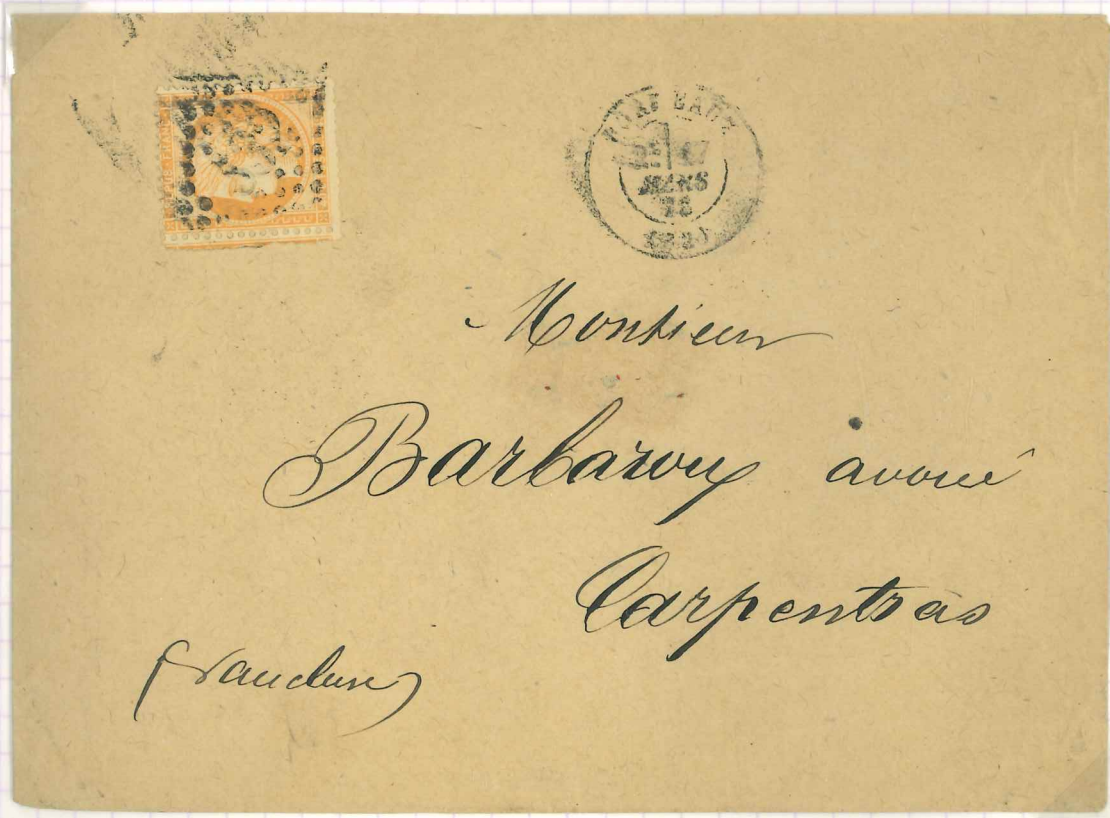 BORDEAUX
17
MARS
76
Monsieur
Barbaroux avoué
Carpentras
(Vaucluse)